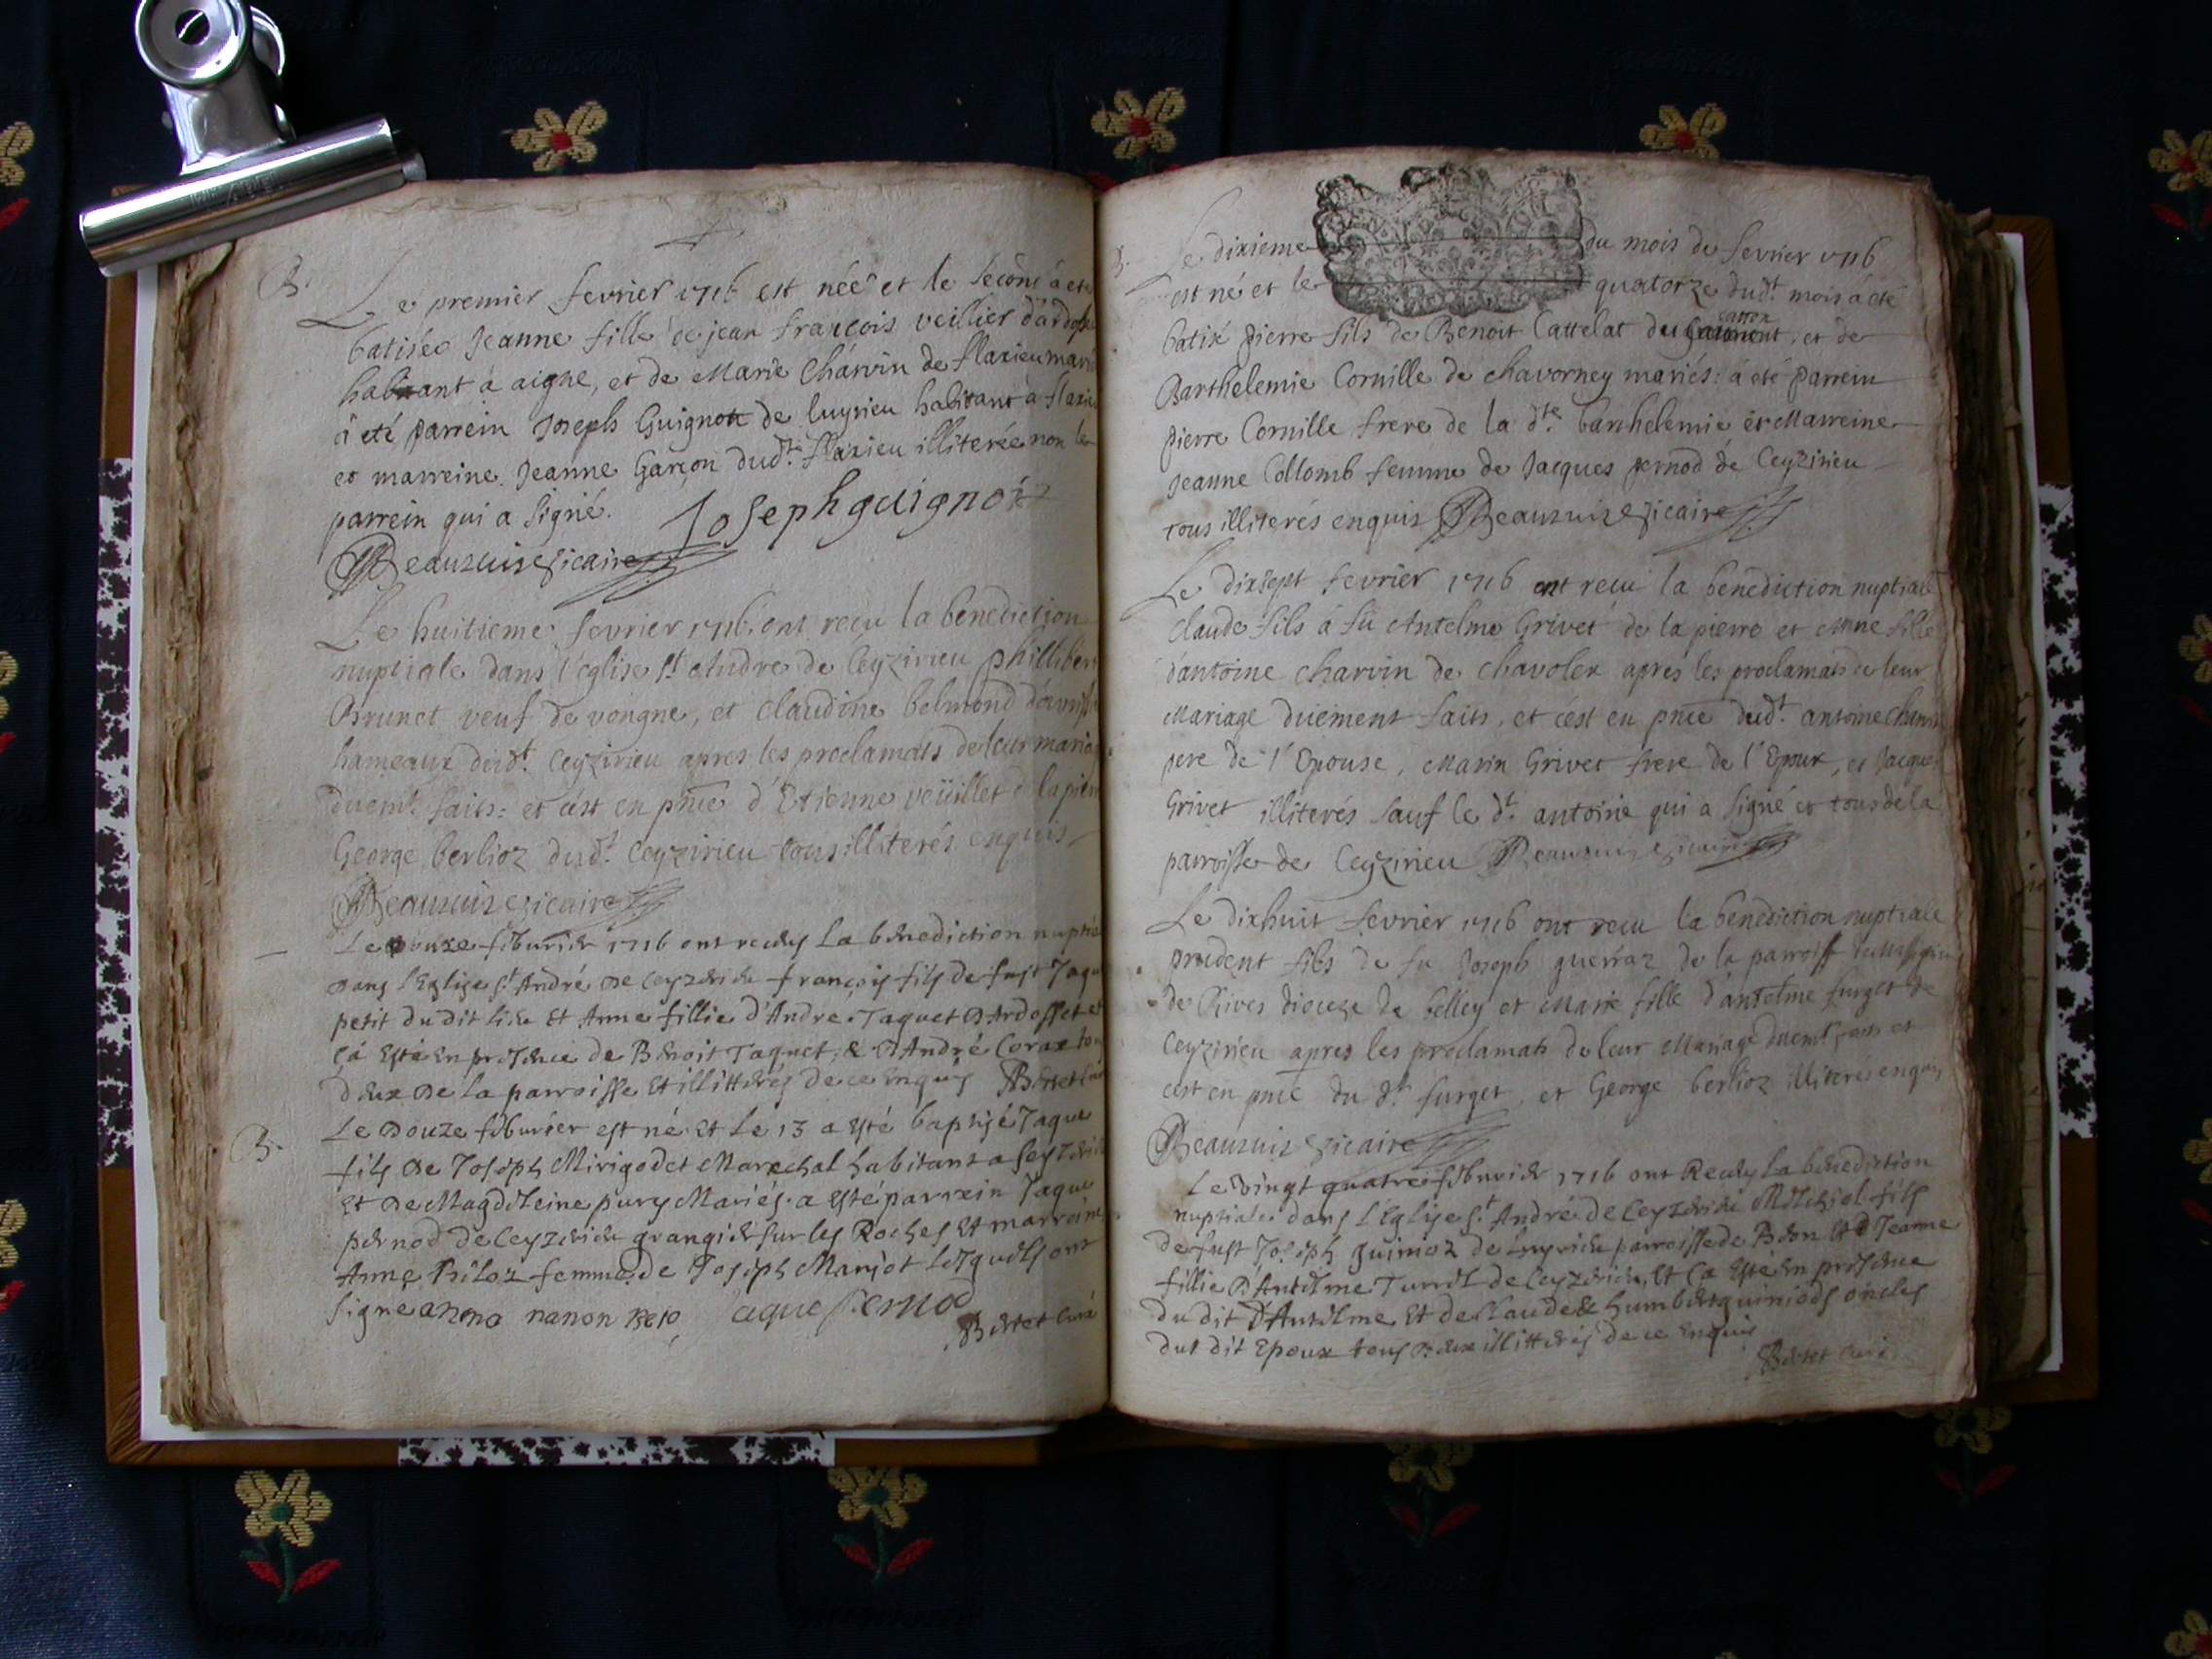 B.
Le premier fevrier 1716 est néé et le second à eté
batiseé Jeanne fille de jean francois veillier d'ardosset
habitant à aigne, et de Marie Charvin de flaxieu mariés
à eté parrein Joseph Guignot de luyrieu habitant à flaxieu
et marreine Jeanne Garçon dud.t flaxieu illitereé non le
parrein qui a signé. Joseph guignot
Beauruis vicaire
Le huitieme fevrier 1716 ont recu la benediction
nuptiale dans l'église St Andre de Ceyzirieu phillibert
Brunet veuf de vongne, et claudine belmond d'avrissieu
hameaux dud.t Ceyzirieu apres les proclamats de leur mariage
duem.t faits: et c'est en pnce d'Etienne veüillet de lapierre
George berlioz dud.t Ceyzirieu tous illiterés enquis
Beauruis vicaire
Le douze feburier 1716 ont recus La benediction nuptiale
Dans l'Eglise St André de Ceyzerieu françois fils de fust Jaque
petit du dit lieu Et Anne fillie d'Andre Jaquet D'Ardosset et
ça esté en présence de Benoit Jaquet & D'André Corax tous
deux De la parroisse Et illitterés de ce enquis Bertet Curé
B.
Le Douze feburier est né Et Le 13 a esté baptisé Jaque
fils De Joseph Mirigodet Marechal habitant a Ceyzerieu
Et De Magdeleine pury Mariés. a esté parrein Jaque
pernod de Ceyzerieu grangier sur les Roches Et marreine
Anne femme de Joseph Marjot Lesquels ont
signe anna nanon Jaque pernod
Bertet Curé
B.
Le dixieme du mois de fevrier 1716
est né et le quatorze dud.t mois à eté
batisé pierre fils de Benoit Cattelat du catton, et de
Barthelemie Cornille de chavorney mariés: à eté parrein
pierre Cornille frere de la d.te barthelemie et Marreine
Jeanne Collomb femme de Jacques pernod de Ceyzirieu
tous illiterés enquis Beauruis vicaire
Le dixsept fevrier 1716 ont recu la benediction nuptiale
claude fils à fü Antelme Grivet de la pierre et Anne fille
d'antoine charvin de chavolex aprés les proclamats de leur
Mariage duëment faits, et c'est en pnce dud.t antoine charvin
pere de l'Epouse, Marin Grivet frere de l'Epoux, et Jacques
Grivet illiterés sauf le d.t antoine qui a signé et tous de la
parroisse de Ceyzirieu Beauruis vicaire
Le dixhuit fevrier 1716 ont recu la benediction nuptiale
prudent fils de fu Joseph guerraz de la parroisse
de Rives dioceze de belley et Marie fille d'antelme furget de
Ceyzirieu apres les proclamats de leur Mariage duem.t faits et
c'est en pnce du d.t furget, et George berlioz illiterés enquis
Beauruis vicaire
Le vingt quatre feburier 1716 ont Receu La benediction
nuptiale dans L'Eglise St André de Ceyzerieu Michiel fils
de fust Joseph guinioz de Luyrieu parroisse de Beon Et Jeanne
fillie D'Antelme Turrel de Ceyzerieu, Et Ça Esté en présence
du dit D'Antelme Et de Claude & humbert guiniods oncles
dut dit Epoux tous Deux illitterés de ce Enquis
Bertet Curé